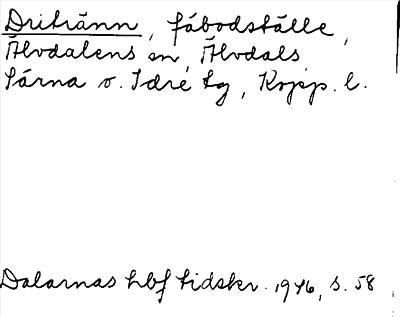 Dritränn, fäbodställe,
Älvdalens sn, Älvdals
Särna o. Idre tg, Kopp. l.
Dalarnas hbf tidskr. 1946, s. 58